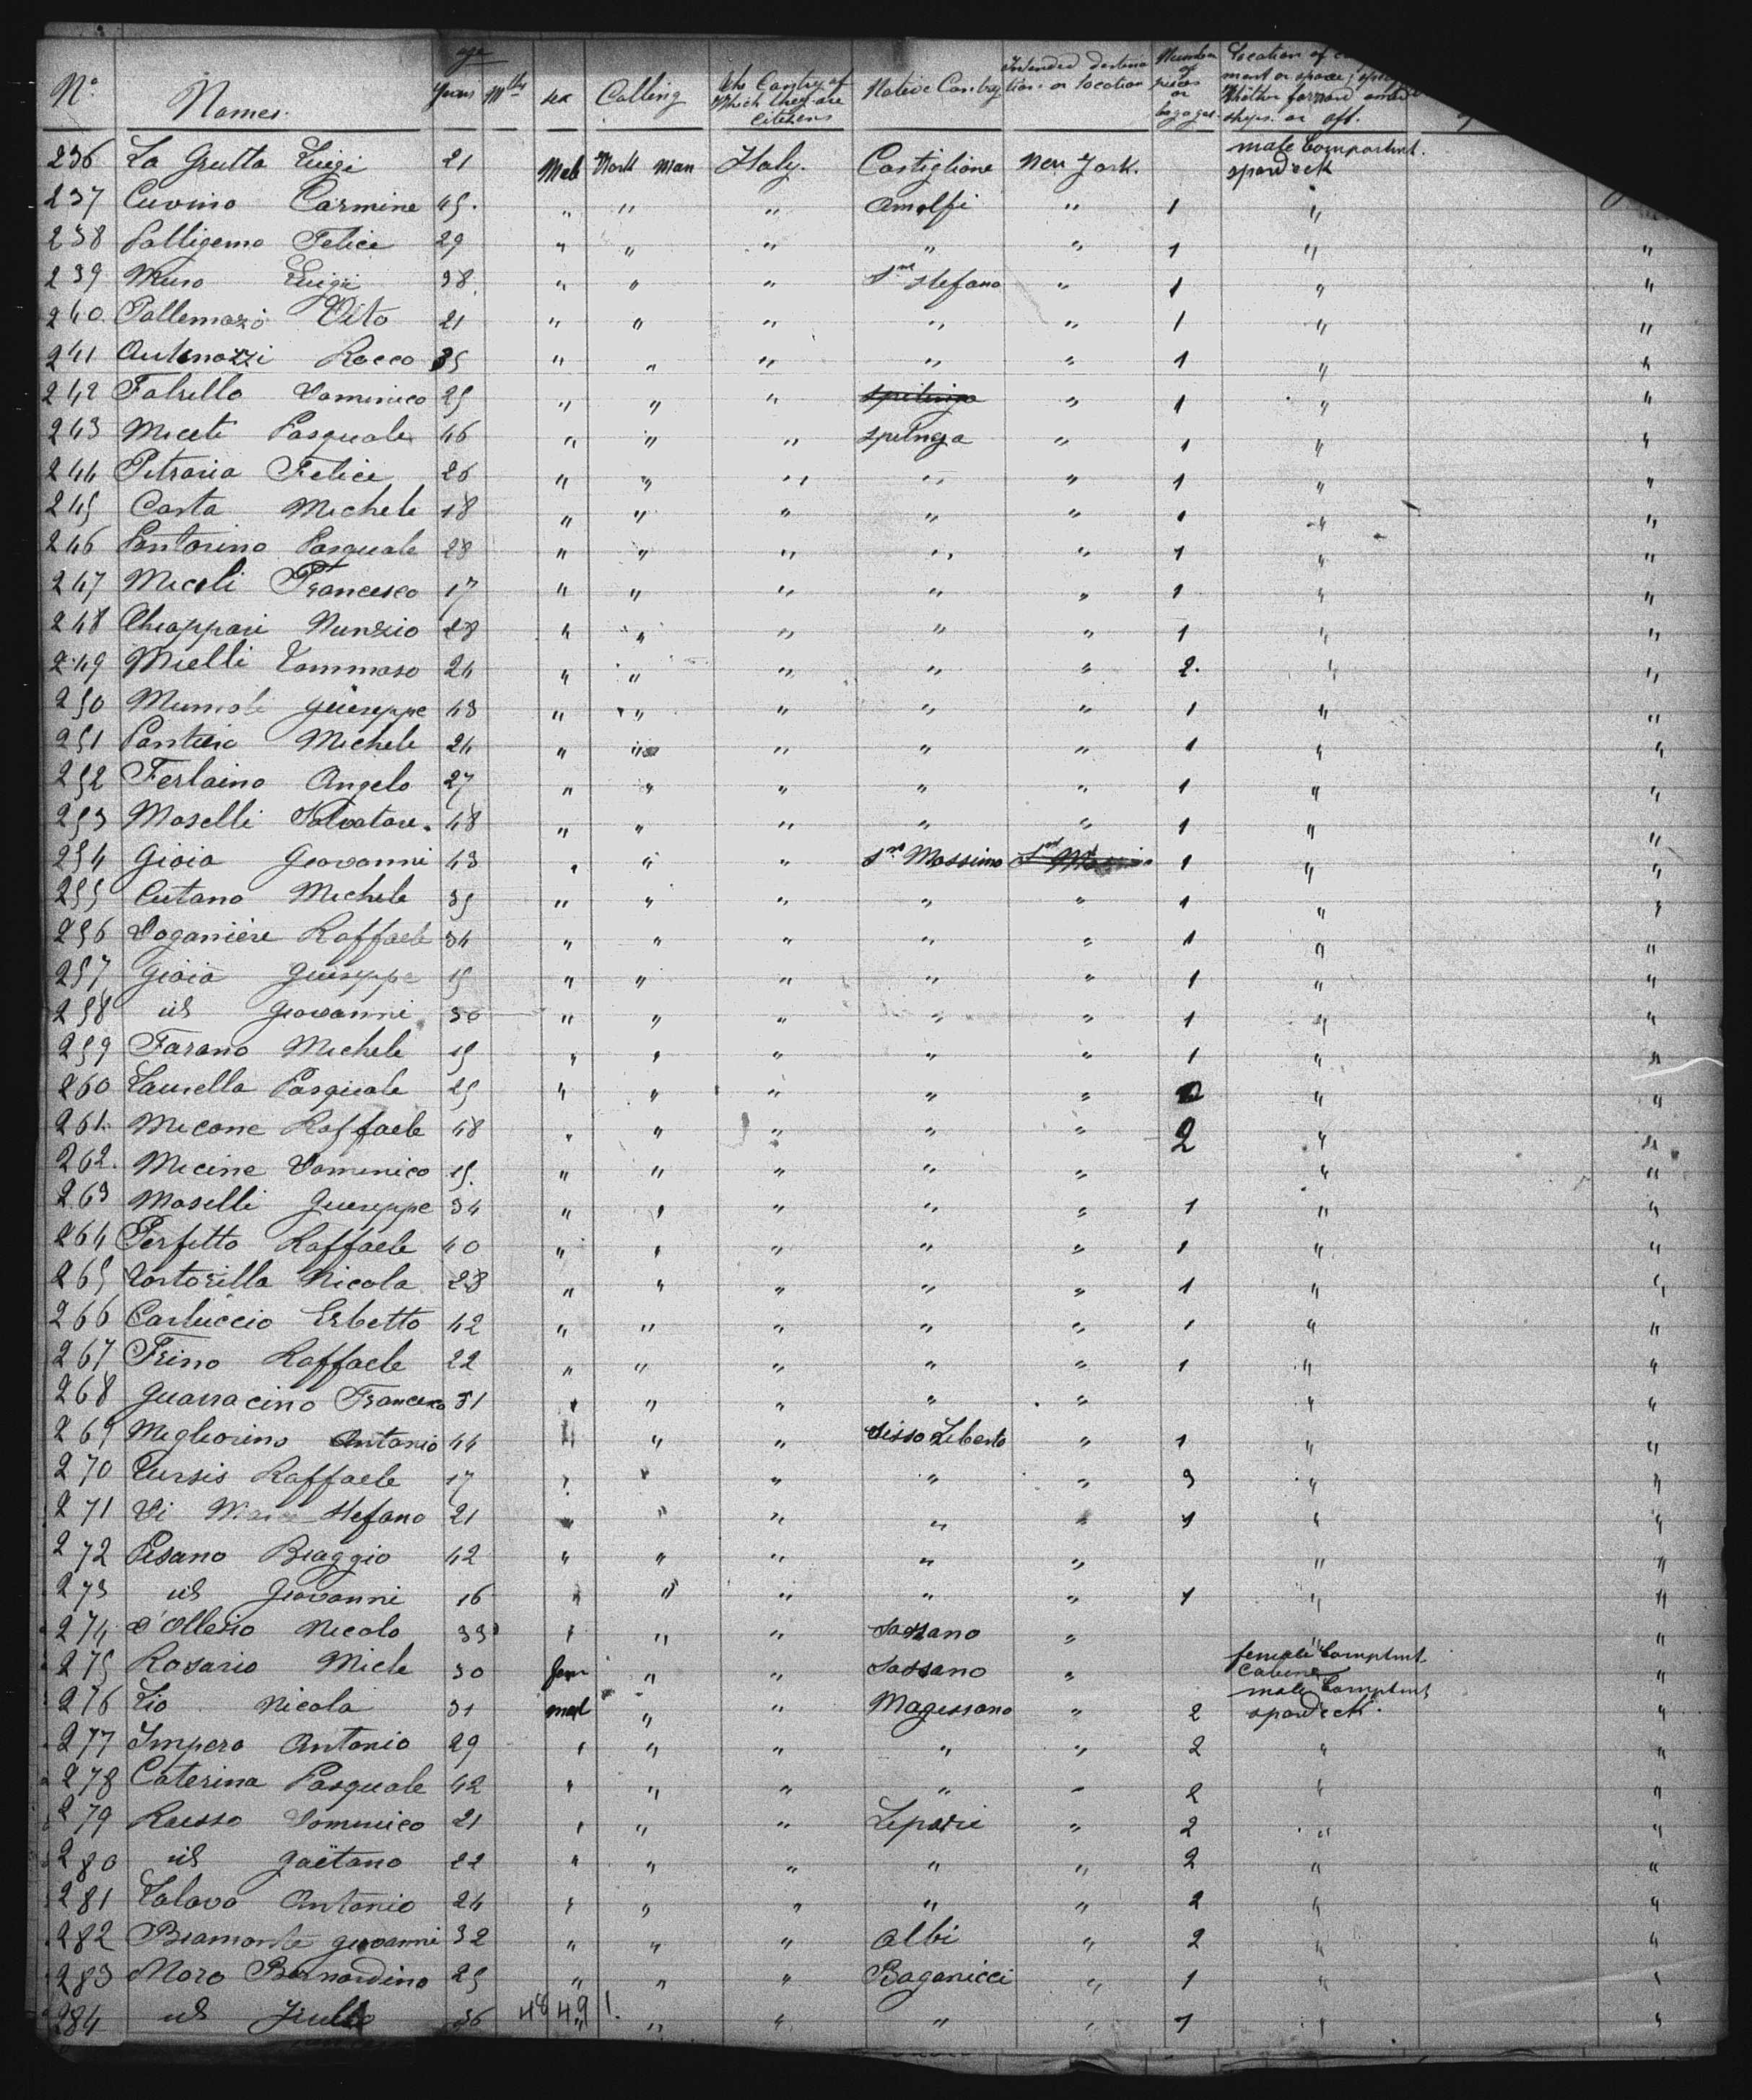 No. Names. age Years Mths sex Calling the Contry of Which they are Citizens Native Contry Intended destina tion or location Number of pieces or bagages Location of ment or space; Whether forward ships or aft.
236 La Grutta Luigi 21 Male Work Man Italy. Castiglione New York. male Compartmt. spardeck
237 Cuvino Carmine 45. " " " Amalfi " 1 "
238 Palligemo Felice 29 " " " " " 1 " "
239 Muro Luigi 38. " " " Sn Stefano " 1 " "
240. Pallemozo Vito 21 " " " " " 1 " "
241 Autinozzi Rocco 35 " " " " " 1 " "
242 Falsello Domenico 25 " " " spilinga " 1 " "
243 Miceti Pasquale 46 " " " spilinga " 1 " "
244 Pitraria Felice 26 " " " " " 1 " "
245 Costa Michele 18 " " " " " 1 " "
246 Pontorino Pasquale 28 " " " " " 1 " "
247 Miceli Francesco 17 " " " " " 1 " "
248 Chiappari Nunzio 28 " " " " " 1 " "
249 Mielli Tommaso 24 " " " " " 2. " "
250 Giuseppe 43 " " " " " 1 " "
251 Michele 24 " " " " " 1 " "
252 Ferlaino Angelo 27 " " " " " 1 " "
253 Moselli Salvatore. 48 " " " " " 1 " "
254 Gioia Giovanni 43 " " " Sn Massimo 1 " "
255 Cutano Michele 35 " " " " " 1 " "
256 Doganiere Raffaele 34 " " " " " 1 " "
257 Gioia Giuseppe 15 " " " " " 1 " "
258 id Giovanni 36 " " " " " 1 " "
259 Farano Michele 15 " " " " " 1 " "
260 Laurella Pasquale 25 " " " " " 2 " "
261. Micone Raffaele 48 " " " " " 2 " "
262. Micine Domenico 15. " " " " " " "
263 Moselli Giuseppe 34 " " " " " 1 " "
264 Perfetto Raffaele 40 " " " " " 1 " "
265 Tortorilla Nicola 28 " " " " " 1 " "
266 Carluccio Erbetto 42 " " " " " 1 " "
267 Frino Raffaele 22 " " " " " 1 " "
268 Guarracino Francesco 31 " " " " " " "
269 Migliorino Antonio 44 " " " " 1 " "
270 Cursis Raffaele 17 " " " " " 3 " "
271 Di Stefano 21 " " " " " 1 " "
272 Pisano Biaggio 42 " " " " " " "
273 id Giovanni 16 " " " " " 1 " "
274 d'Ollesio Nicola 33 " " " Sassano " " "
275 Rosario Miele 30 fem " " Sassano " female Comptmt. Cabine "
276 Lio Nicola 31 mal " " Magissano " 2 male Comptmt spardeck. "
277 Impero Antonio 29 " " " " " 2 " "
278 Caterina Pasquale 42 " " " " " 2 " "
279 Russo Domenico 21 " " " Lipari " 2 " "
280 id Gaëtano 22 " " " " " 2 " "
281 Antonio 24 " " " " " 2 " "
282 Biamonte Giovanni 32 " " " Albi " 2 " "
283 Moro Bernardino 25 " " " Baganicci " 1 " "
284 id 36 48 49 1. " " " " " 1 " "